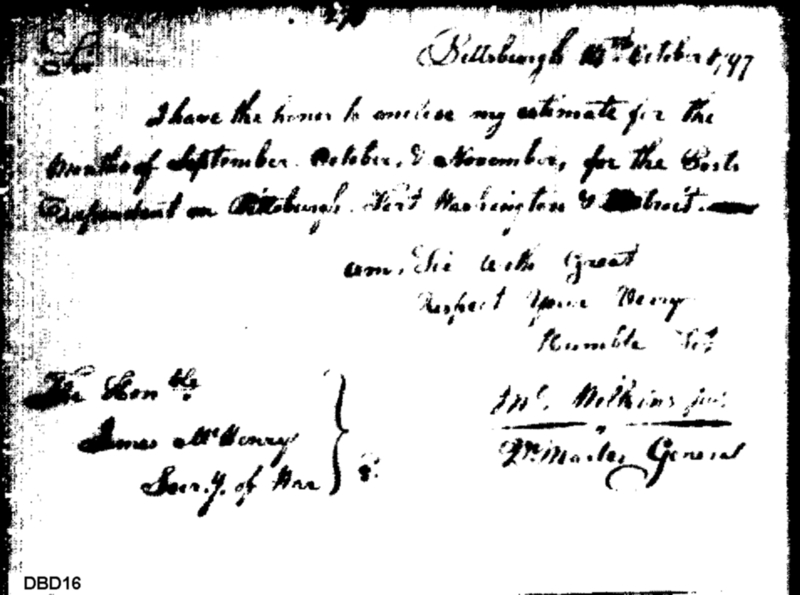 Sir
Pittsburgh 14th October 1797
I have the honor to enclose my estimate for the
Months of September October, & November, for the Posts
Dependent on Pittsburgh. Fort Washington & Detroit
am, Sir with Great
Respect Your Very
Humble Svt
Jno. Wilkins junr
Qr. Master General
The Honble
James McHenry
Secr.y. of War
DBD16